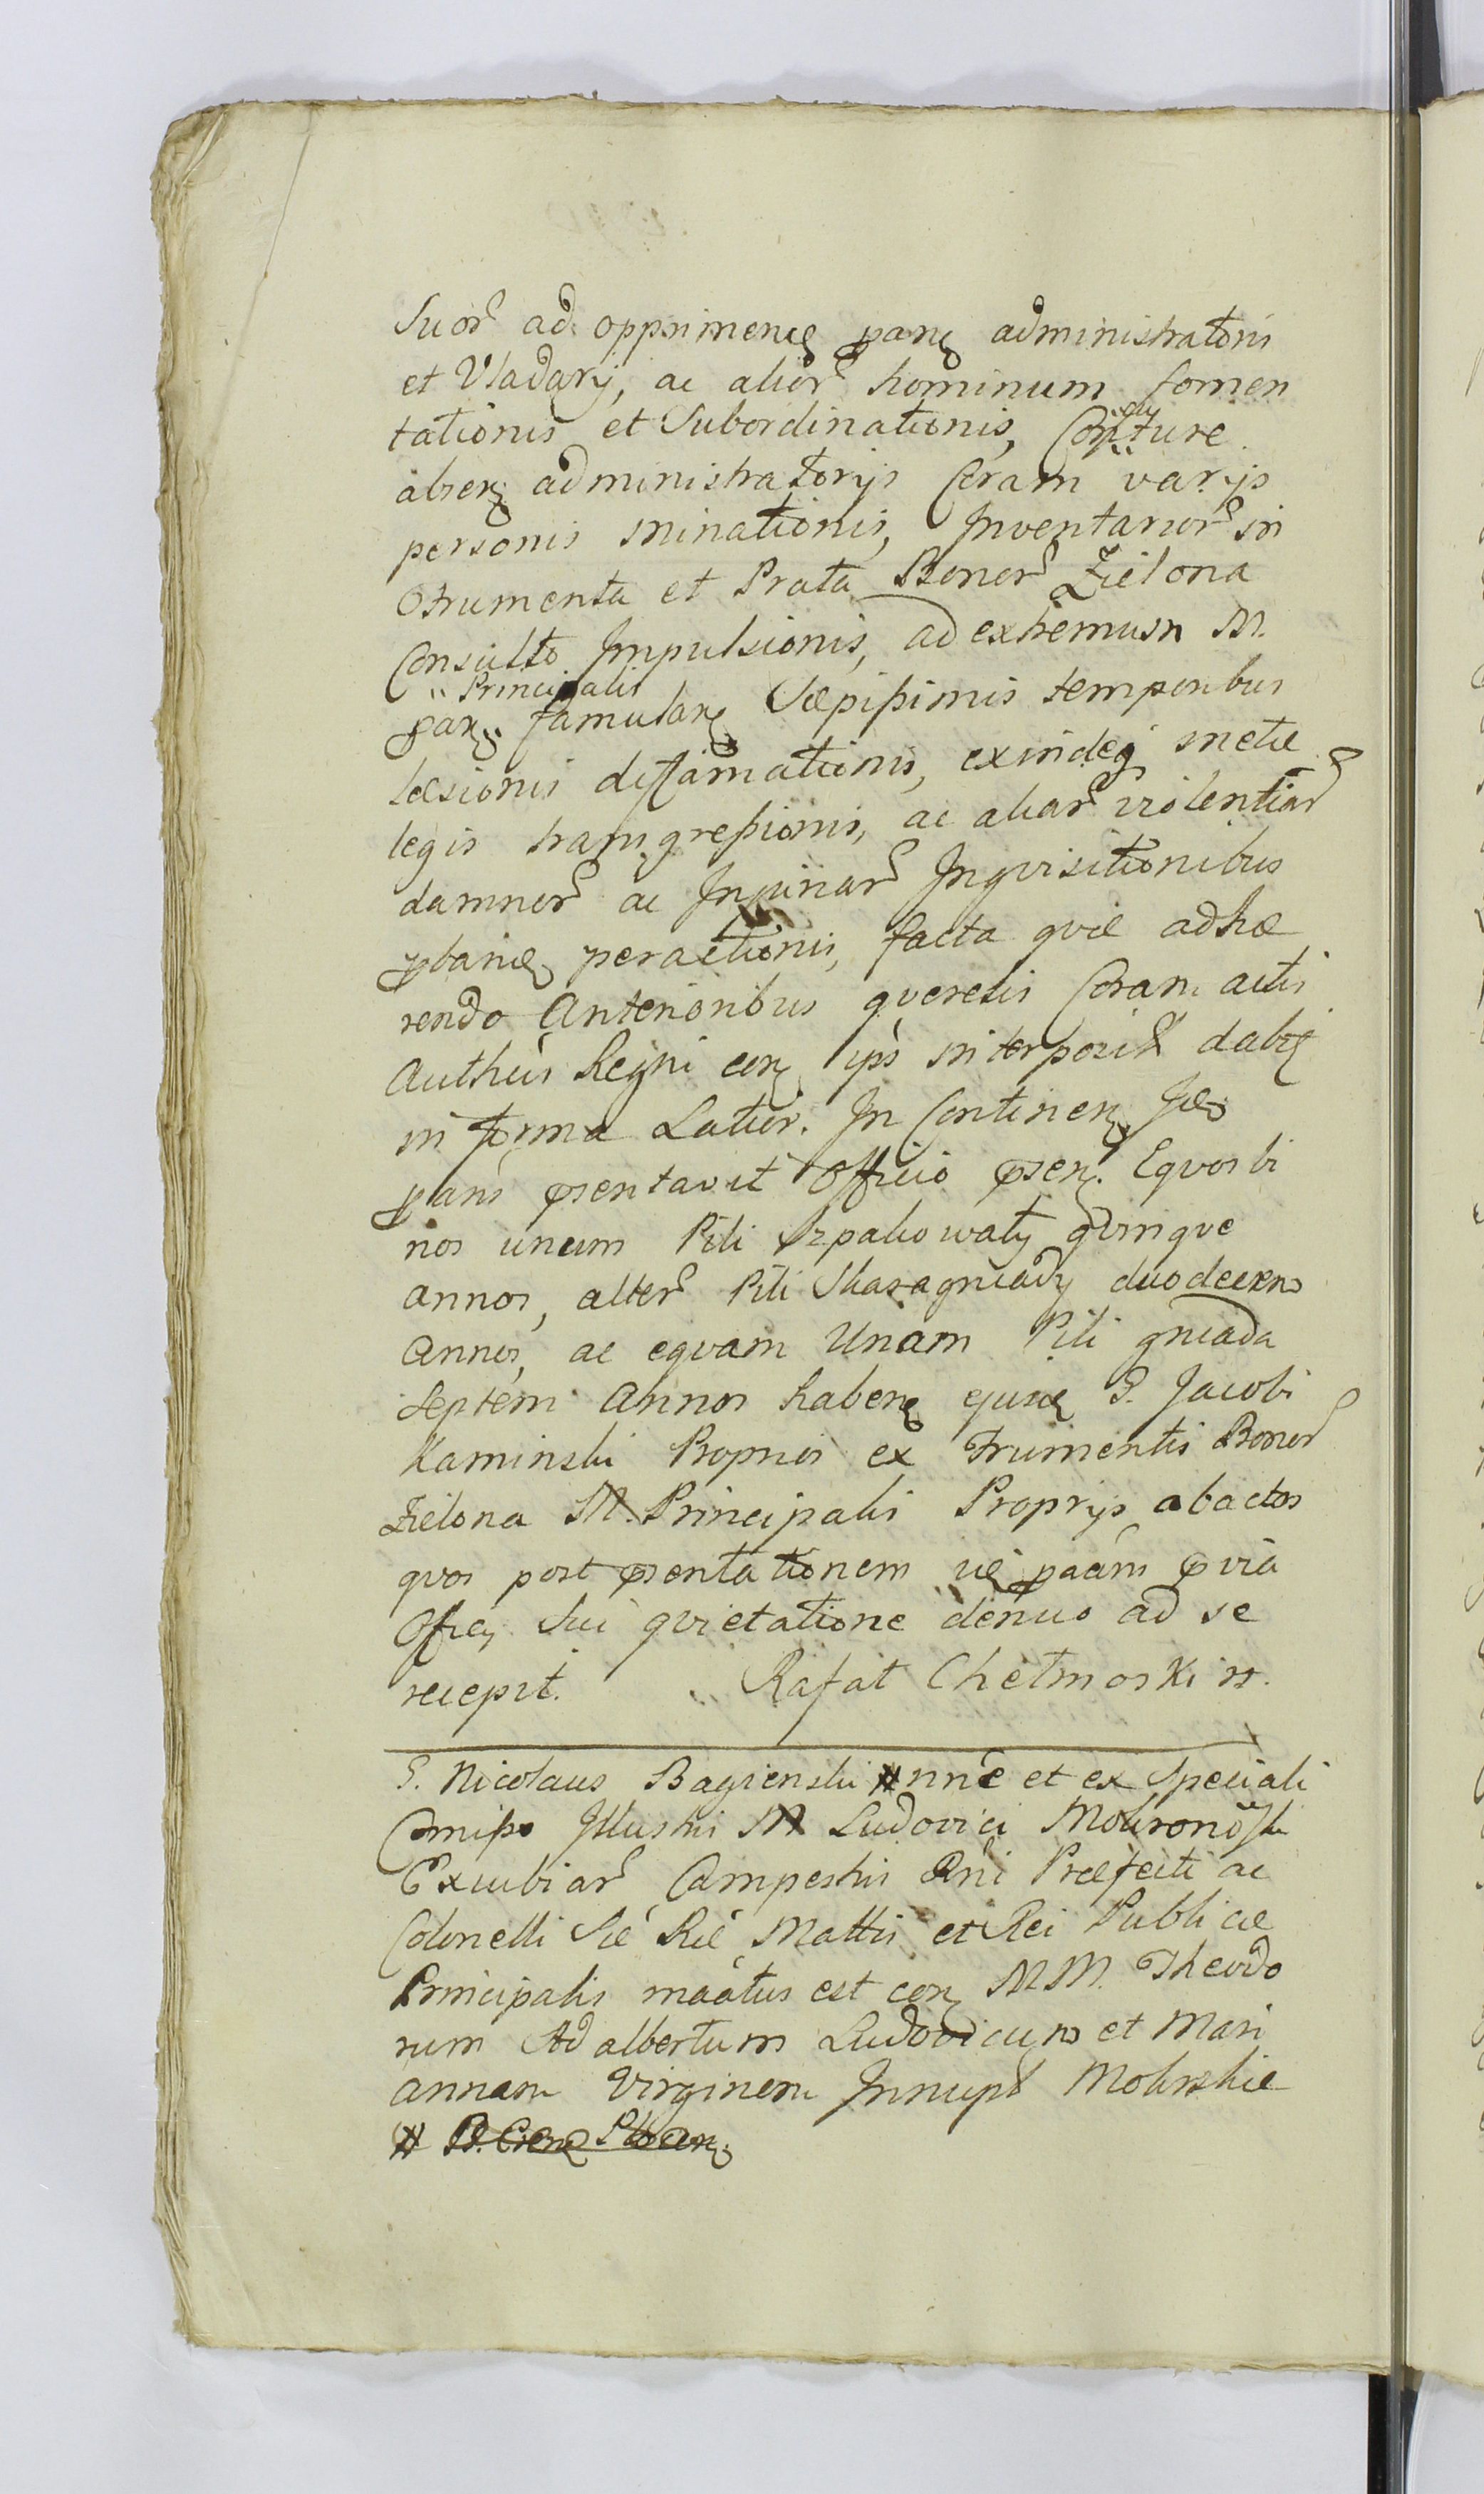 Suor ad opprimend pani administratoris
et Vladarij, ac alior hominum fomen
tationis et Subordinationis,
absen administratorijs Coram varijs
personis minationis, Inventarior in
Frumenta et Prata Bonor Zielona
Consulto Impulsionis, ad extremum M.
Principalis
pan famulan Sæpißimis temporibus
læsionis diffamationis, exindeq metæ
legis transgreßionis, ac aliar violentiar
damnor ac Injuriar Inqvisitionibus
pband peractionis, facta qvie adhæ
rendo Anterioribus qverelis Coram actis
Authcis Regni con ips interposit dabit
in forma Latior. In Continen Ides
pans psentavit Officio psen. Eqvos bi
nos unum Pili Szpakowaty qvinqve
annos, alter Pili Skarogniady duodecem
annos, ac eqvam Unam Pili gniada
Septem annos haben G. Jacobi
Kaminski Proprios ex Frumentis Bonor
Zielona M. Principalis Proprijs abactos
qvos post psentationem id paans pvia
Officij Sui qvietatione denuo ad se
recepit. Rafał Chełmoski
G. Nicolaus Bagienski # nne et ex Speciali
Comißo Illustris M Ludovici Mokronoski
Excubiar Campestris Præfecti ac
Colonelli Sæ Ræ Mattis et Rei Publicæ
Principalis maatus est con MM. Theodo
rum Adalbertum Ludovicum et Mari
annam Virginem Innupt Mokrskie
#